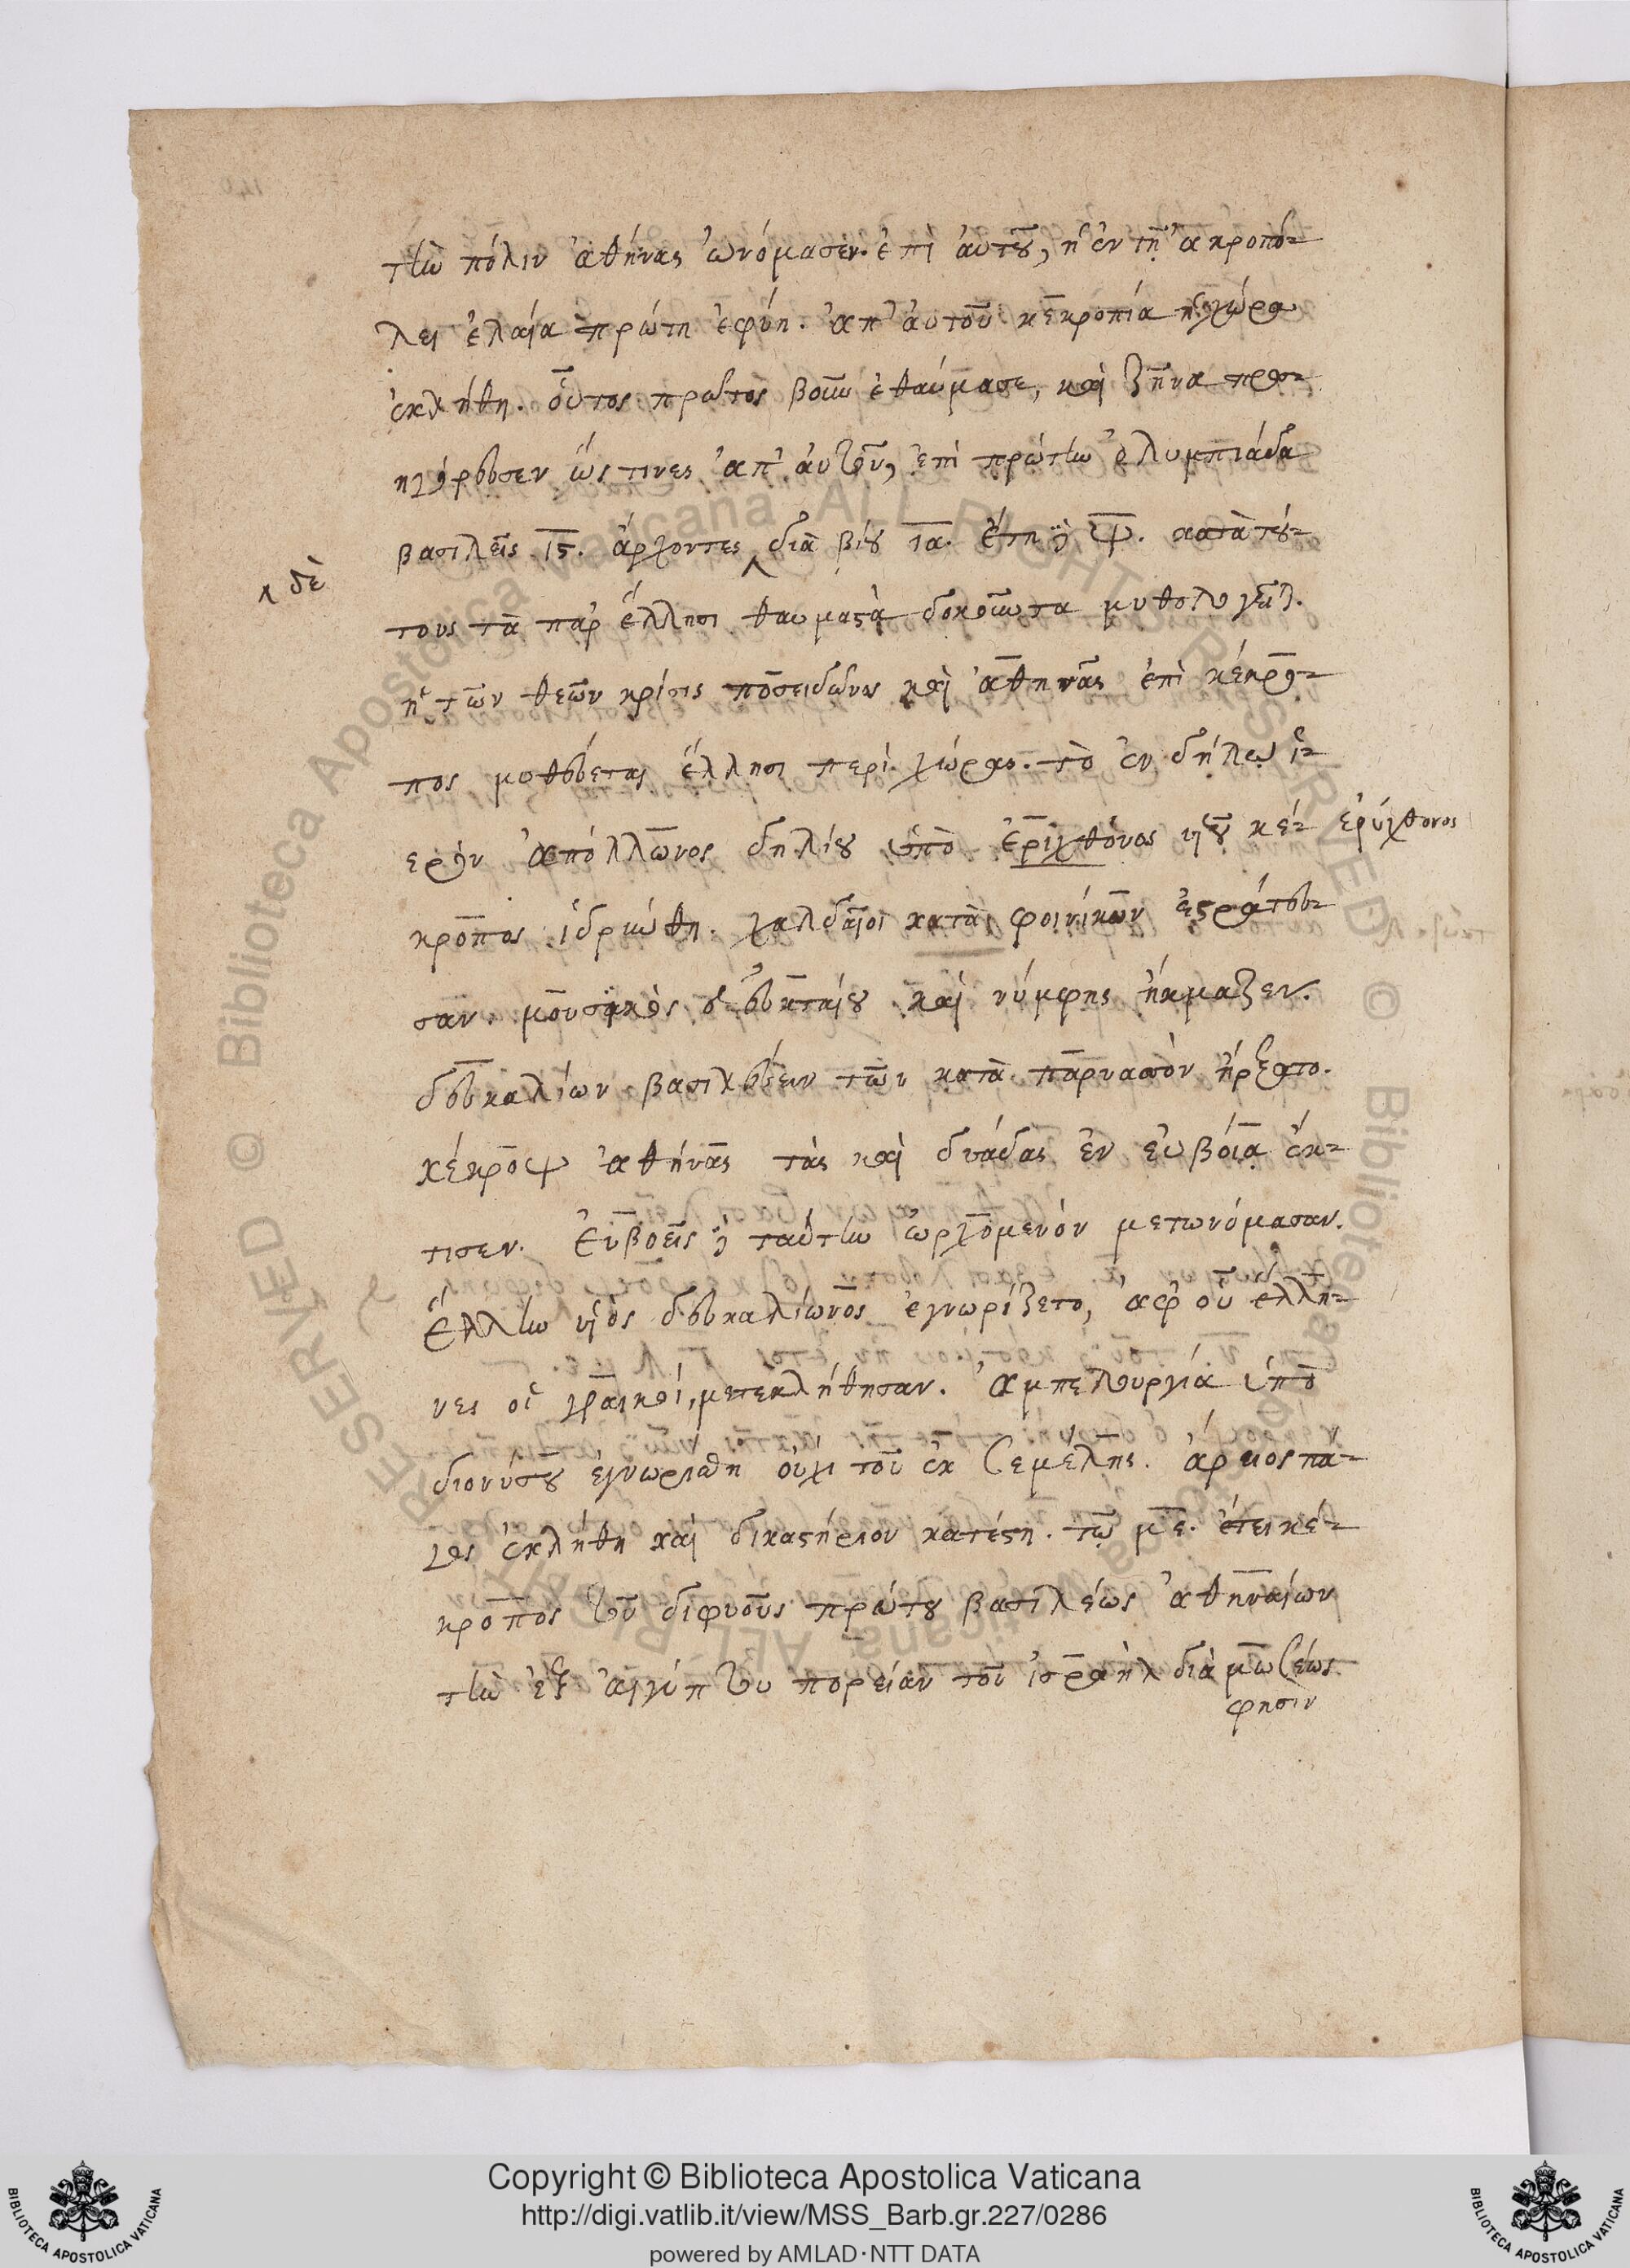 τὴν πόλιν ἀθήνας ὠνόμασεν. ἐπὶ αὐτοῦ, ἡ ἐν τῇ ἀκροπό-
λει ἐλαία πρώτη ἐφύη. ἀπ' αὐτοῦ κεκροπία ἡ χώρα
ἐκλήθη. οὗτος πρῶτος βοῦν ἐθαύμασε, καὶ ζῆνα προσ-
ηγόρευσεν ὥς τινες ἀπ' αὐτοῦ, ἐπὶ πρώτην ὀλυμπιάδα
βασιλεῖς ιϛ. ἄρχοντες διὰ βίου ια. ἔτη δὲ
^ δὲ
κατὰ τού-
τους τὰ παρ' ἕλλησι θαυμαστὰ δοκοῦντα μυθολογεῖται.
ἡ τῶν θεῶν κρίσις ποσειδῶνος καὶ ἀθηνᾶς ἐπὶ κέκρο-
πος μυθεύεται ἕλλησι περὶ χώρας. τὸ ἐν δήλῳ ἱ-
ερὸν ἀπόλλωνος δηλίου ὑπὸ ἐριχθόνος υἱοῦ κέ-
ἐρύχθονος
κροπος ἱδρύθη. χαλδαῖοι κατὰ φοινίκων ἐστράτευ-
σαν. μουσαῖος ὁ καὶ νύμφης ἤκμαζεν.
δευκαλίων βασιλεύειν τῶν κατὰ παρνασὸν ἤρξατο.
κέκροψ ἀθήνας τὰς καὶ δυάδας ἐν εὐβοίᾳ ἔκ-
τισεν. εὐβοεῖς δὲ ταύτην ὠρχομενὸν μετωνόμασαν.
ἕλλην υἱὸς δευκαλίωνος ἐγνωρίζετο, ἀφ' οὗ ἕλλη-
νες οἱ γραικοί, μετεκλήθησαν. ἀμπελουργία ὑπὸ
διονύσου ἐγνωρίσθη οὐχὶ τοῦ ἐκ σεμέλης. ἄρειος πά-
γος ἐκλήθη καὶ δικαστήριον κατέστη. τῷ με. ἔτει κέ-
κροπος τοῦ διφυοῦς πρώτου βασιλέως ἀθηναίων
τὴν ἐξ αἰγύπτου πορείαν τοῦ ἰσραὴλ διὰ μωσέως
φησὶν
Copyright © Biblioteca Apostolica Vaticana
http://digi.vatlib.it/view/MSS_Barb.gr.227/0286
powered by AMLAD·NTT DATA